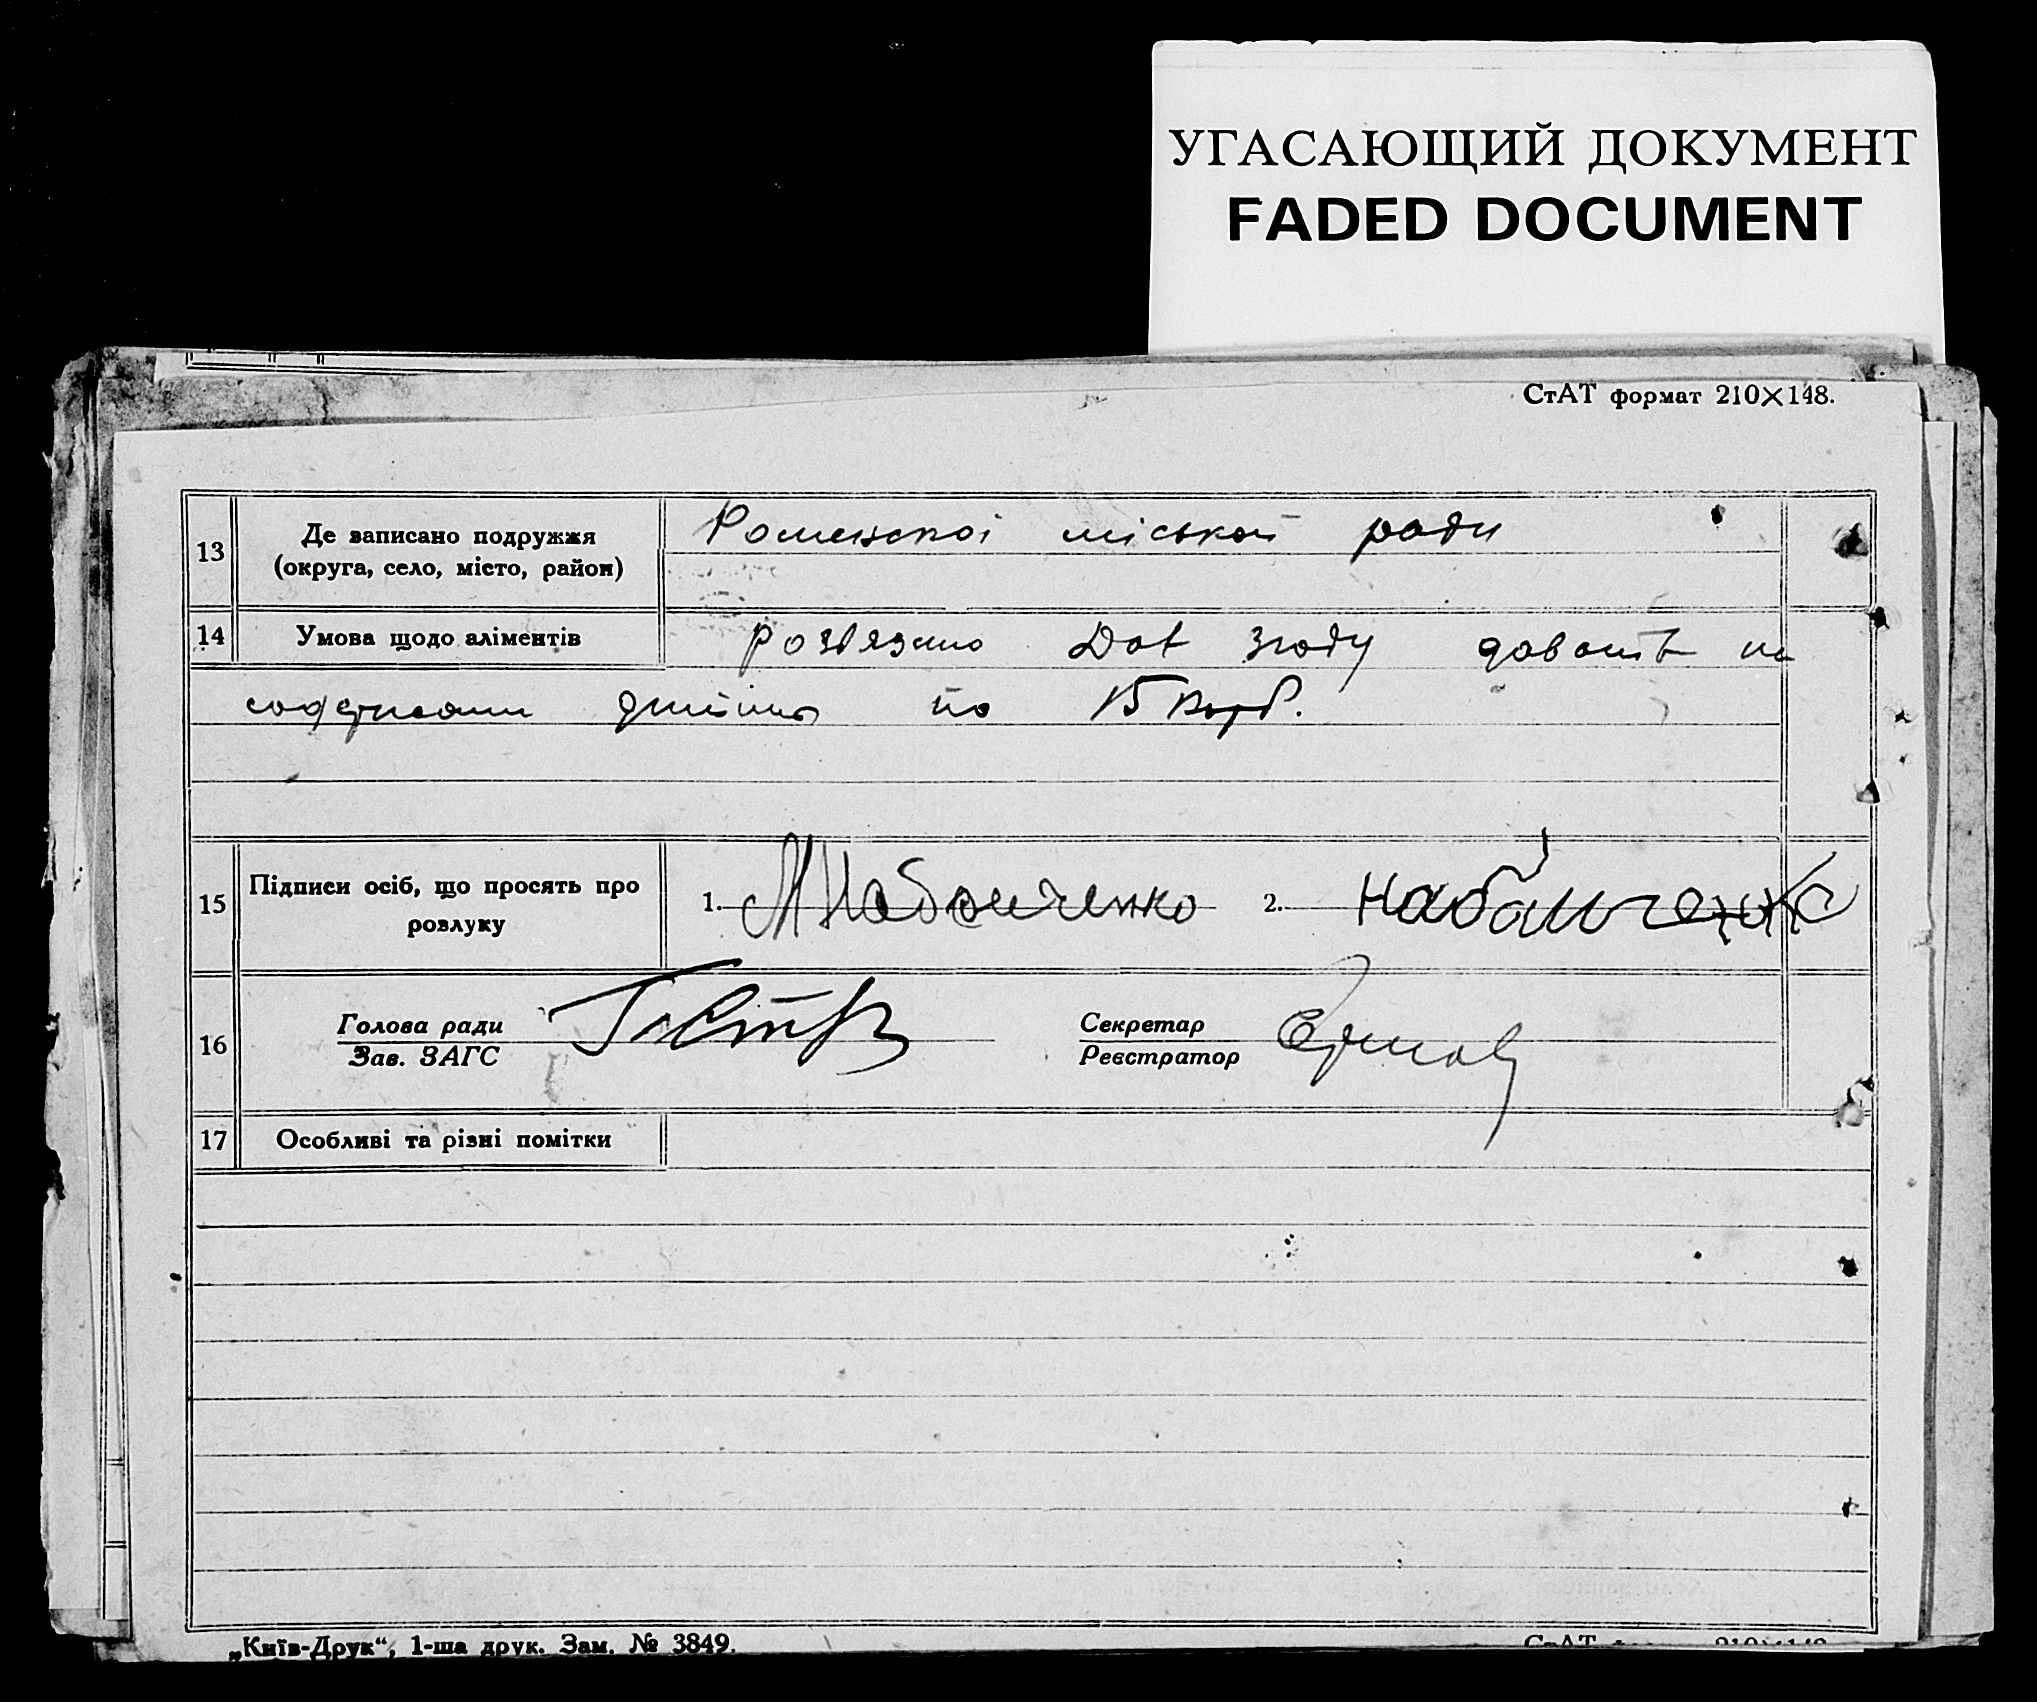 УГАСАЮЩИЙ ДОКУМЕНТ
FADED DOCUMENT
СтАТ формат 210×148.
13
Де записано подружжя
(округа, село, місто, район)
Роменскої міської ради
14
Умова щодо аліментів
розвязано Dat згоду давать на
содержани дитини по 15 крб.
15
Підписи осіб, що просять про
розлуку
1. 2.
16
Голова ради
Зав. ЗАГС
Секретар
Реєстратор
17
Особливі та різні помітки
„Київ-Друк“, 1-ша друк. Зам. № 3849.
СтАТ формат 210×148